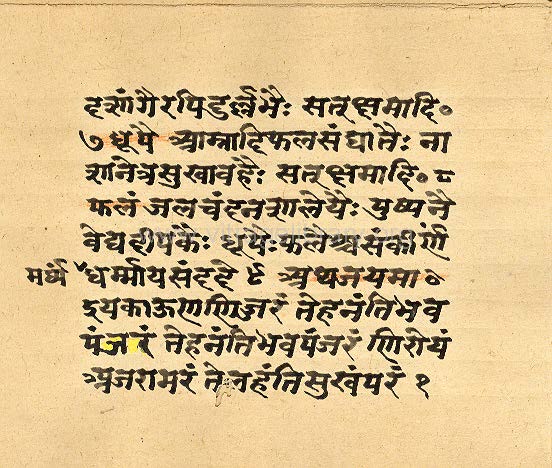 दशांगैरपि दुर्ल्लभैः सत्क्षमादि॰
७ धूपै आम्रादिफलसंघातैः ना
शानेत्रसुखावहैः सत्क्षमादि॰ ८
फलं जलचंदनशालेयैः पुष्पनै
वेद्यदीपकैः धूपैःफलैश्च संकीर्ण
मर्घं धर्म्माय संददे ९ अथ जयमा॰
इय काऊण णिज्जरं ते हनंति भव
पंजरं ते हनंति भवपंजरं णिरोयं
अजरामरं ते लहंति सुखं परं १